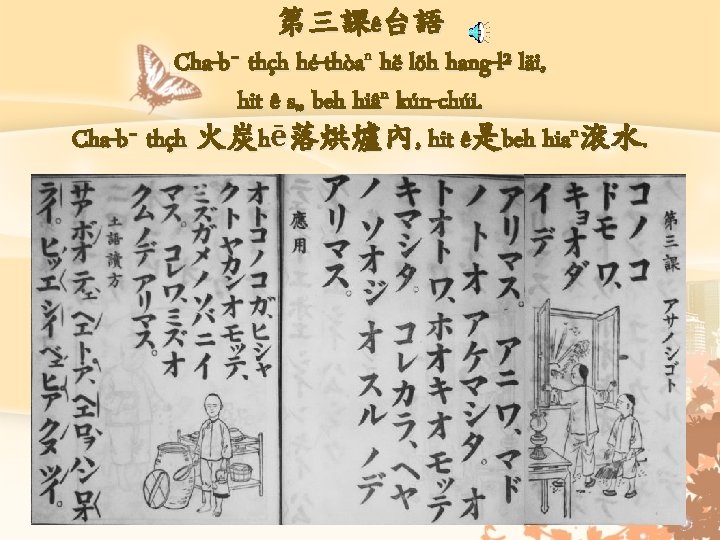 第三課ê台語
Cha-b⁻ thçh hé-thòaⁿ hë lõh hang-l² läi,
hit ê s„ beh hiâⁿ kún-chúi.
Cha-b⁻ thçh 火炭hē落烘爐內, hit ê是beh hiaⁿ滾水.
第三課 アサノシゴト
コノコ
ドモワ、
キヨオダ
イデ
アリマス。アニワ、マド
ノトオ アケマシタ。オ
トオトワ、ホオキオモッテ
キマシタ。コレカラ、ヘヤ
ノソオジ オスルノデ
アリマス。
應用
オトコノコガ、ヒシャ
クトヤカンオモッテ、
ミズガメノソバニイ
マス。コレワ、ミズオ
クムノデアリマス。
土語讀方
サアボオ テエ ヘエトア、ヘエ ロヲ ハン
ライ。ヒッエ シイ ベエ ヒア クヌ ツイ。